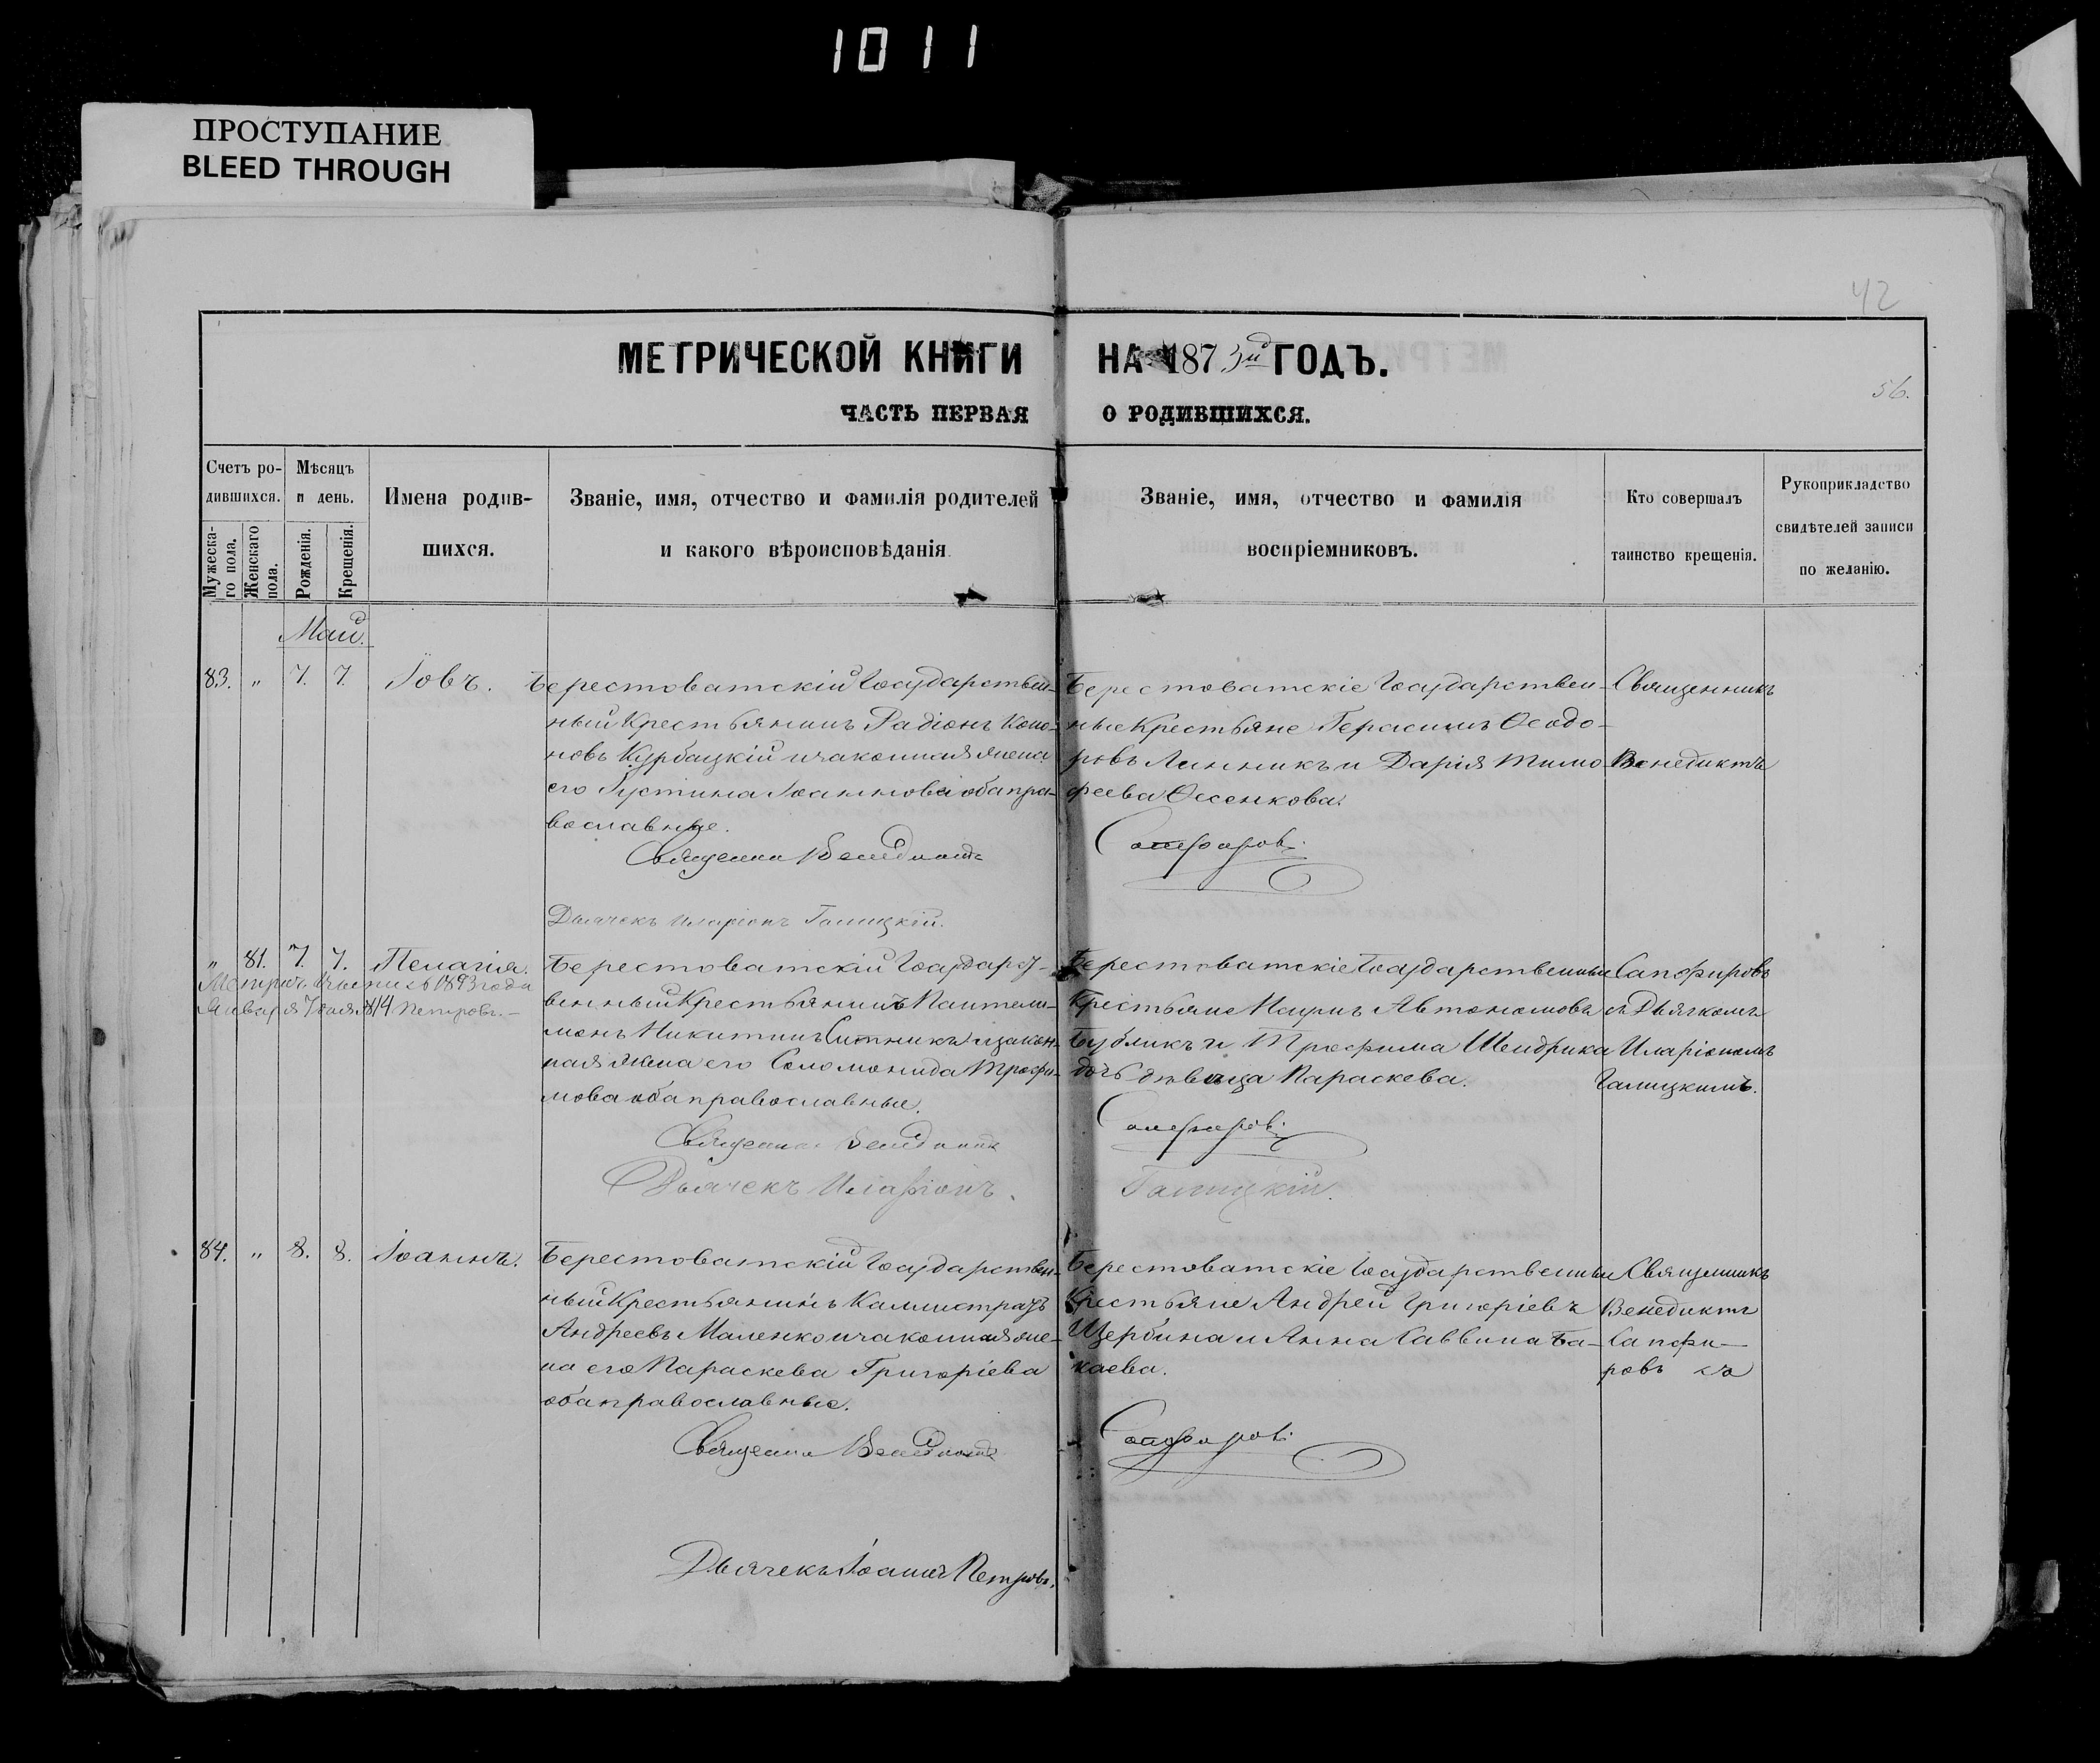 1011
ПРОСТУПАНИЕ
BLEED THROUGH
42
МЕТРИЧЕСКОЙ КНИГИ НА 1873ий ГОДЪ.
56.
ЧАСТЬ ПЕРВАЯ О РОДИВШИХСЯ.
Счетъ ро-
дившихся.
Мужеска-
го пола.
Женскаго
пола.
Мѣсяцъ
и день.
Рожденія.
Крещенія.
Имена родив-
шихся.
Званіе, имя, отчество и фамилія родителей
и какого вѣроисповѣданія
Званіе, имя, отчество и фамилія
воспріемниковъ.
Кто совершалъ
таинство крещенія.
Рукоприкладство
свидѣтелей записи
по желанію.
Май.
83. " 7. 7. Іовъ.
Берестоватскій Государствен-
ный Крестьянинъ Радіонъ Коно-
новъ Курбацкій и законная жена
его Іустина Іоаннова оба пра-
вославные.
Священникъ Венедиктъ
Дьячекъ Иларіонъ Галицкій.
Берестоватскіе Государствен-
ные Крестьяне Герасимъ Ѳеодо-
ровъ Линникъ и Дарія Тимо-
феева Ѳесенкова.
Сапфировъ
Священникъ
Венедиктъ
" 81. 7. 7. Пелагія.
Метрич. выпись 1893 года
Января 7 дня №14 Петровъ.
Берестоватскій Государст-
венный Крестьянинъ Пантели-
монъ Никитинъ Ситникъ и закон-
ная жена его Соломонида Трофи-
мова оба православные.
Священникъ Венедиктъ
Дьячекъ Иларіонъ
Берестоватскіе Государственные
Крестьяне Автономовъ
Бубликъ и Трофима Шендрика
дочь дѣвица Параскева.
Сапфировъ
Галицкій.
Сапфировъ
съ Дьячкомъ
Иларіономъ
Галицкимъ.
84. " 8. 8. Іоаннъ.
Берестоватскій Государствен-
ный Крестьянинъ Каллистратъ
Андреевъ Маленко и законная же-
на его Параскева Григоріева
оба православные.
Священникъ Венедиктъ
Дьячекъ Іоаннъ Петровъ.
Берестоватскіе Государственные
Крестьяне Андрей Григоріевъ
Щербина и Анна Саввина Ба-
каева.
Сапфировъ
Священникъ
Венедиктъ
Сапфи-
ровъ съ